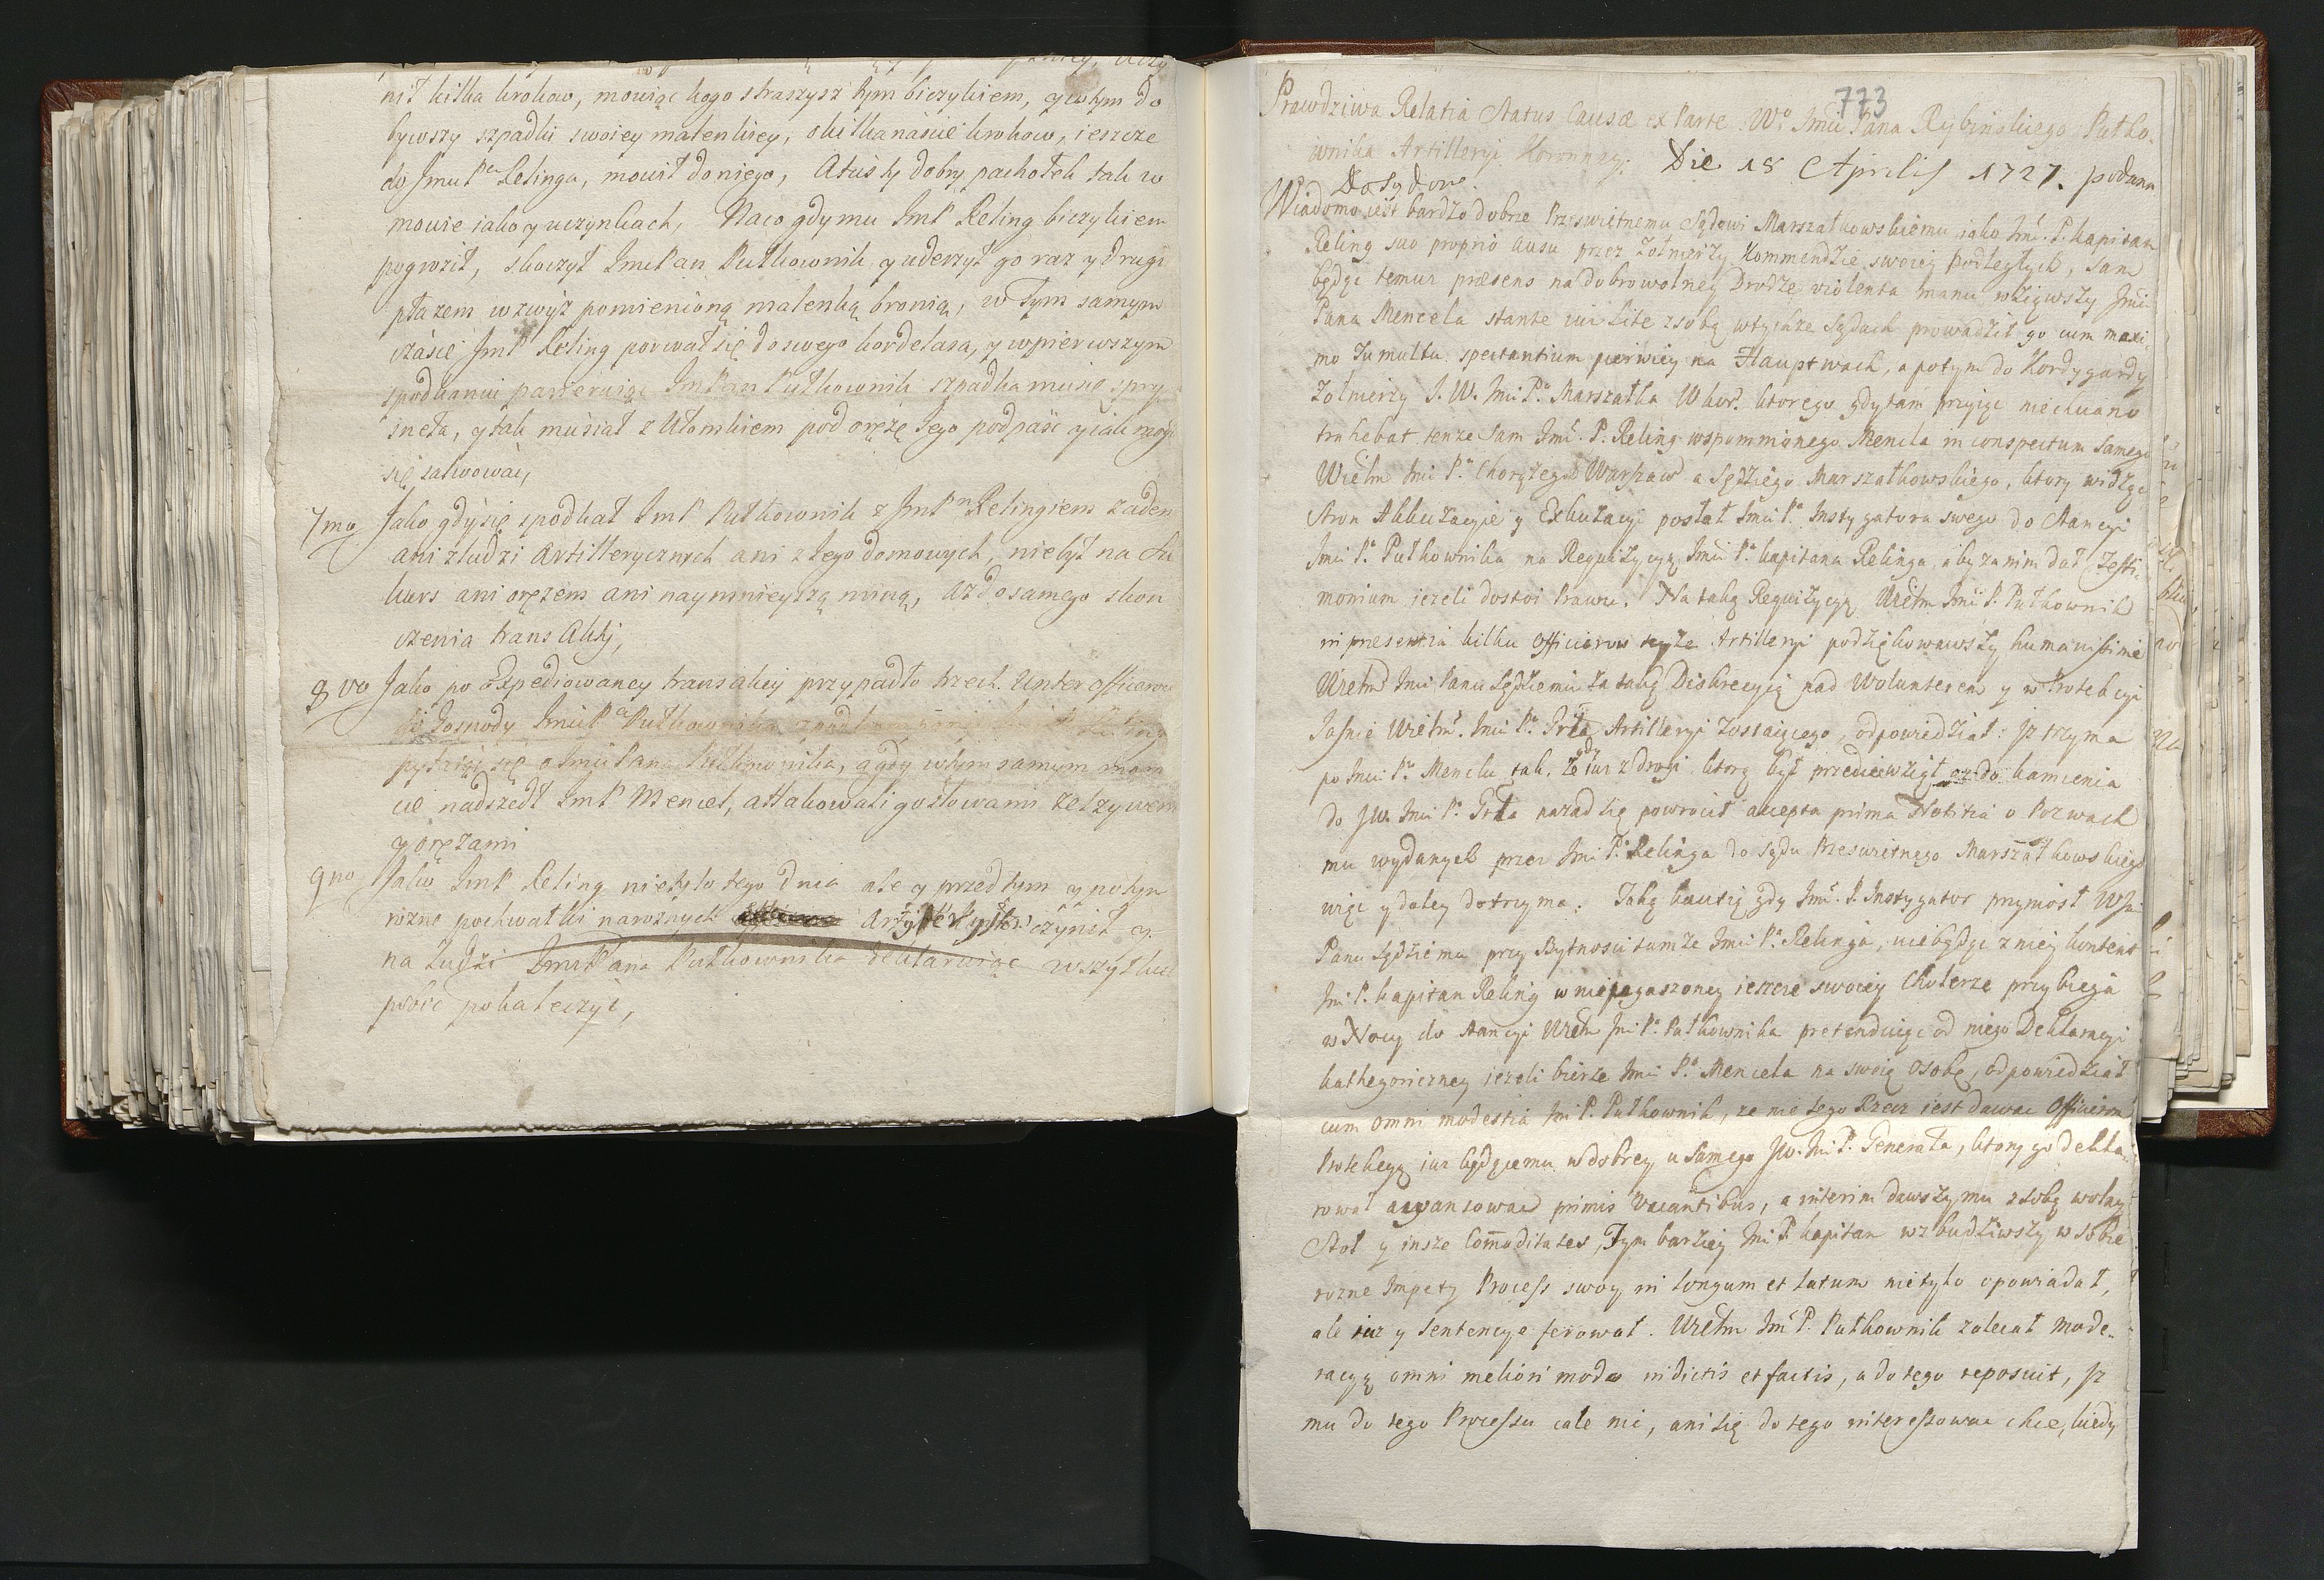 nił kilka krokow, mowiąc kogo straszysz tym biczykiem, y wtym do
bywszy szpadki swoiey malenkiey, o kilkanaście krokow, ieszcze
do Jmu Pa Relinga, mowił do niego, Atuś ty dobry pachołek tak w
mowie iako y uczynkach, Naco gdy mu ImP Reling biczykiem
pogroził, skoczył ImcPan Pułkownik y uderzył go raz y drugi
płazem wzwyż pomienioną malenką bronią, w tym samym
czasie JmP Reling porwał się do swego kordelasa, y wpierwszym
spodkaniu parieruiąc ImPan Pułkownik szpadka musię spry
sneła, y tak musiał z Ułomkiem pod orężę Jego podpaść y iak mogł
się salwować,
7mo Jako gdy się spodkał ImP Pułkownik z JmPn Relingiem żaden
ani z ludzi Artillerycznych ani z Jego domowych, niebył na Su
kurs ani orężem ani naymnieyszą miną, aż do samego skon
czenia transakty,
8vo Jako po Expediowaney transakcij przypadło trzech Unter officerow
do Gospody ImuPa Pułkownika
pytaiąc się o Jmu Pana Pułkownika, a gdy wtym samym mom
cie nadszedł ImP Mencel, attakowali go słowami zelzywem
y orężami
9no Jako ImP Reling nietylo tego Dnia ale y przed tym y potym
rozne pochwałki na roznych Artylerystow czynił y
na Ludzi ImuPana Pułkownika deklaruiąc wszytkie
prosic pokaleczyć,
773
Prawdziwa Relatia Status Causæ ex Parte Wo Jmci Pana Rybinskiego Pułko-
wnika Artilleryi Koronney. Die 18 Aprilis 1727. podana
Do Sądow.
Wiadomo iest bardzo dobrze Prześwietnemu Sądowi Marszałkowskiemu iako Jmć. P. Kapitan
Reling suo proprio ausu przez Żołnierzy Kommendzie swoiey podległych, sam
będąc temuz præsens na dobrowolney Drodze violenta manu wziąwszy Jmci
Pana Mencela stante iui lite zsobą wtychże Sądach prowadził go cum maxi-
mo Tumultu spectantium pierwiey na Hauptwach, a potym do Kordygardy
Żołnierzy J. W. Jmci Pa Marszałka W kor. ktorego gdy tam przyiąć niechciano
trahebat tenze sam Jmć. P. Reling wspomnionego Mencla in conspectum samego
Wielm Jmci Pa Chorążego Warszaw a Sędziego Marszałkowskiego, ktory widząc
stron Akkuzacyie y Exkuzacyi posłał Jmci Pa Instygatora swego do Stancyi
Jmci Pa Pułkownika na Requizycyą Jmci Pa Kapitana Relinga, aby za nim dał Testi-
monium iezeli dostoi Prawu. Na taką Requizycyą Wielm Jmci P. Pułkownik
in presentia kilku Officierow teyże Artilleryi podziękowawszy humanissime
Wielm Jmci Panu Sędziemu za taką Diskrecyią nad Wolunterem y w Protekcyi
Jaśnie Wielm. Jmci Pa Grła Artilleryi zostaiącego, odpowiedział: Jz trzyma
po Jmci Pu Menclu tak, że gdy iuz z drogi ktorą był przedsiewziął az do kamienia
do JW. Jmci Pa Grła nazad się powrocił accepta prima Notitia o Pozwach
mu wydanych przez Jmci Pa Relinga do sądu Przeswietnego Marszałkowskiego
więc y daley dotrzyma. Taką kaucią gdy Jmć. P. Instygator przyniosł W Jmci
Panu Sędziemu przy Bytnosci tamże Jmci Pa Relinga, niebędąc z niey kontent
Jmci P. Kapitan Reling w niezagaszoney ieszcze swoiey Cholerze przybiega
w Nocy do stancyi Wielm Jmci Pa Pułkownika pretenduiąc od niego Deklaracyi
kathegoriczney iezeli bierze Jmci Pa Mencela na swoią osobę, odpowiedział
cum omni modestia Jmci P. Pułkownik, ze nie iego Rzecz iest dawac Officierom
Protekcyą iuz będącemu w dobrey u samego JW. Jmci P. Generała, ktory go dekla-
rował awansowac primis Vacantibus, a interim dawszy mu z sobą wolny
Stoł y insze Commoditates, Tym barziey Jmci P. Kapitan wzbudziwszy w sobie
rozne Impety Process swoy in longum et latum nietylo opowiadał,
ale iuz y Sentencye ferował. Wielm Jmć P. Pułkownik zalecał Mode-
racyą omni meliori modo in dictis et factis, a do tego reposuit, Jz
mu do tego Processu cale nic, ani się do tego interessować chce, kiedy